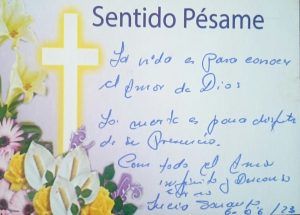 Sentido Pésame
La vida es para conocer
el Amor de Dios
La muerte es para disfrutar
de su Presencia.
Con todo el Amor
infinito y Descanso
Lucia